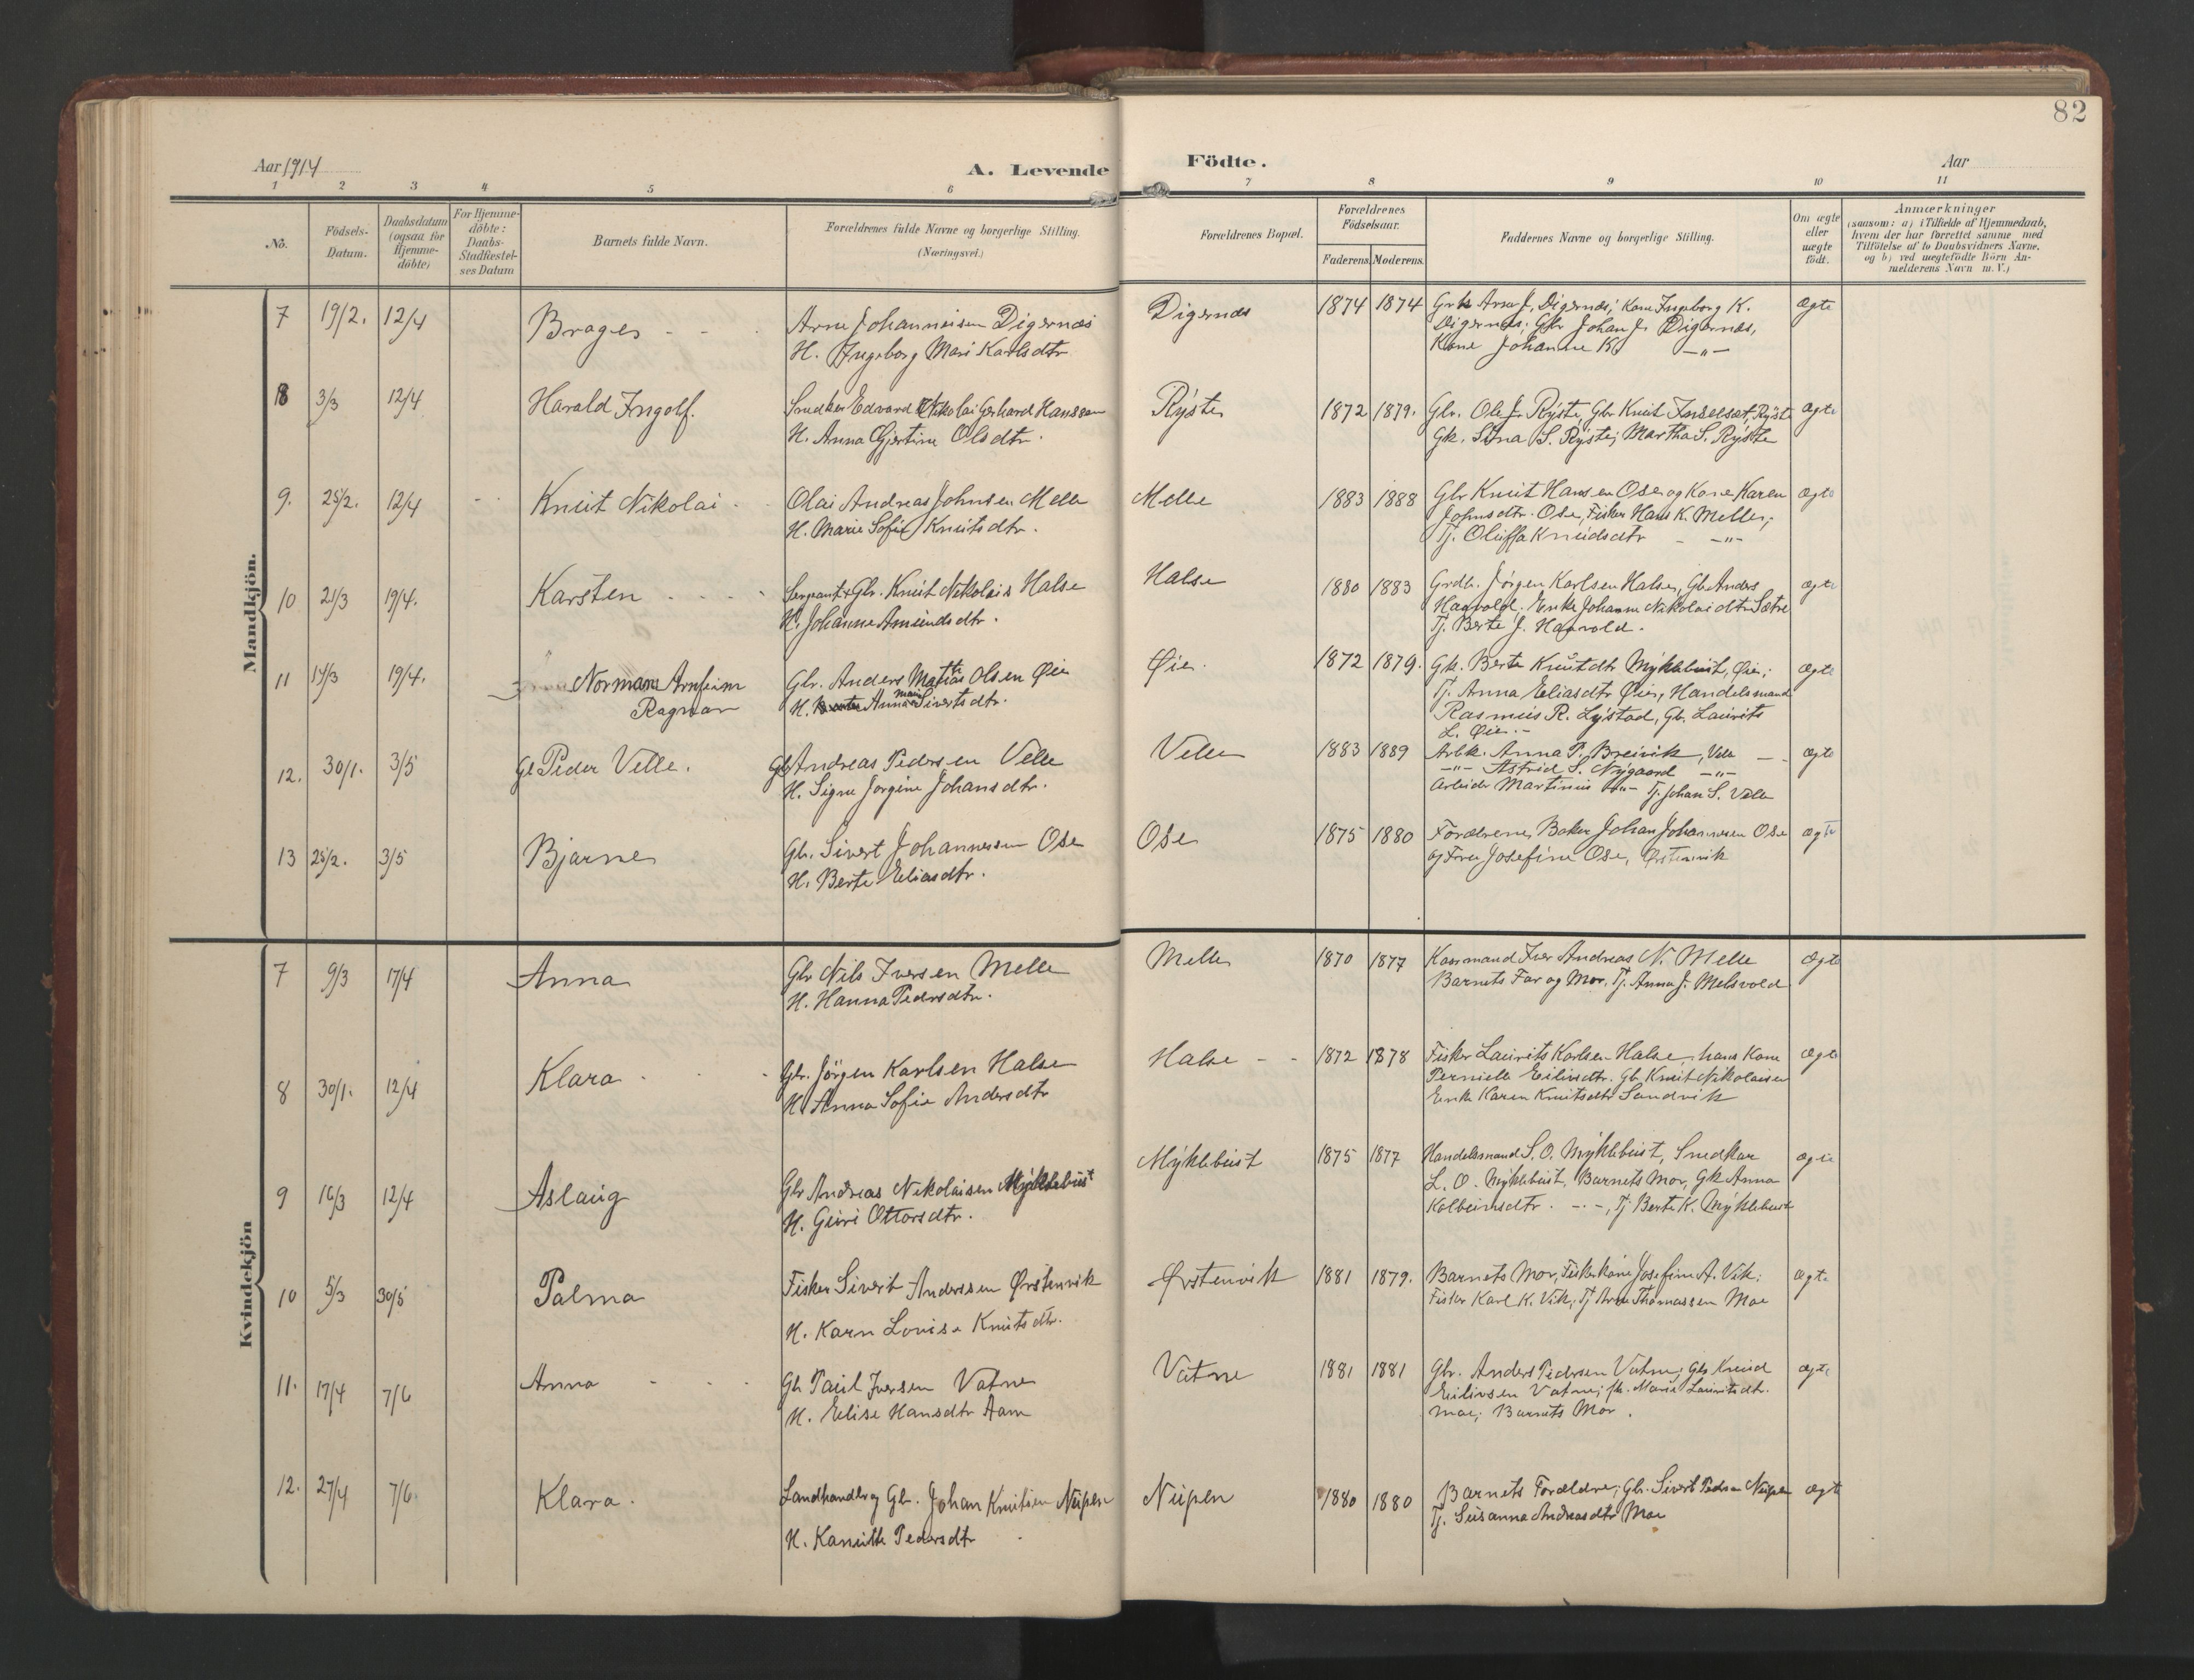 82
Aar 1914
A. Levende
Födte.
Aar
1 2 3 4 5 6 7 8 9 10 11
No.
Födsels-
Datum.
Daabsdatum
(ogsaa for
Hjemme-
döbte)
For Hjemme-
döbte:
Daabs-
Stadfæstel-
ses Datum
Barnets fulde Navn.
Forældrenes fulde Navne og borgerlige Stilling.
(Næringsvei.)
Forældrenes Bopæl.
Forældrenes
Födselsaar.
Faderens. Moderens.
Faddernes Navne og borgerlige Stilling.
Om ægte
eller
uægte
födt.
Anmærkninger
(saasom: a) i Tilfælde af Hjemmedaab,
hvem der har forrettet samme med
Tilföielse af to Daabsvidners Navne,
og b) ved uægtefödte Börn An-
melderens Navn m. V.)
Mandkjön.
7 19/2. 12/4 Brages - - Arne Johannesen Digernæs
H. Ingeborg Mari Karlsdtr
Digernæs 1874 1874
Grk Arne J. Digernæs; Kone Ingeborg K.
Digernæs; Gbr Johan J. Digernæs,
Kone Johanne K. —"—
Ægte
8 3/3 12/4 Harald Ingolf. Snedker Edvard Nikolai Gerhard Hanssen
H. Anna Gjertine Olsdtr.
Ryste 1872 1879.
Gbr. Ole J. Ryste, Gbr Knut Ryste
Gk. Sina S. Ryste; Martha S. Ryste
Ægte
9. 25/2. 12/4 - - Knut Nikolai - Olai Andreas Johnsen Melle
H. Marie Sofie Knutsdtr.
Melle 1883 1888
Gbr Knut Hansen Ose og Kone Karen
Johnsdtr. Ose, Fisker Hans K. Melle,
Tj. Oluffa Knudsdtr - —"—
Ægte
10 21/3 19/4. Karsten - - - Sergeant & Gbr. Knut Nikolais Halse
H. Johanne Amundsdtr.
Halse 1880 1883
Grdb. Jørgen Karlsen Halse, Gbr Anders
Haavold. Enke Johanne Nikolaidtr Sætre
Tj. Berte J. Haavold.
ægte
11 14/3 19/4. Normann Arnfinn
Ragnar
Gbr. Anders Mathias Olsen Øie
H. Anna Marie Sivertsdtr.
Øie. 1872 1879.
Gk. Berte Knutdtr Myklebust, Øie;
Tj. Anna Eliasdtr Øie, Handelsmand
Rasmus R. Lystad, Gb. Laurits
L. Øie. -
ægte
12. 30/1. 3/5 Gl Peder Velle. Gb Andreas Pedersen Velle
H. Signe Jørgine Johansdtr.
Velle 1883 1889
Arbk. Anna P. Breivik, Velle — -
—"— Astrid S. Nygaard —"—
Arbeider Martinus —"— Tj. Johan S. Velle
ægte
13 25/2. 3/5 Bjarne Gbr. Sivert Johannessen Ose
H. Berte Eliasdtr.
Ose 1875 1880
Forældrene, Baker Johan Johannesen Ose
og Frue Josefine Ose, Ørstenvik
ægte
Kvindekjön
7 9/3 17/4 Anna Gbr Nils Iversen Melle
H. Hanna Pedersdtr.
Melle 1870 1877
Kaarmand Iver Andreas N. Melle
Barnets Far og Mor, Tj. Anna J. Melsvold
Ægte
8 30/1. 12/4 Klara - - Gbr. Jörgen Karlsen Halse
H. Anna Sofie Andersdtr
Halse - - 1872 1878
Fisker Laurits Karlsen Halse, hans Kone
Pernille Eilivsdtr. Gb. Knut Nikolaisen
Enke Karen Knutsdtr Sandvik
Ægte
9 16/3 12/4 Aslaug Gbr Andreas Nikolaisen Myklebust
H. Guri Ottarsdtr.
Myklebust 1875 1877
Handelsmand S. O. Myklebust, Snedker
L. O. Myklebust, Barnets Mor, Gk Anna
Kolbeinsdtr. - - -, Tj Berte K. Myklebust
ægte
10 5/3 30/5 Palma Fisker Sivert Anderssen Ørstenvik
H. Karn Lovise Knutsdtr.
Ørstenvik 1881 1879.
Barnets Mor, Fiskerkone Josefine A. Vik;
Fisker Karl K. Vik; Tj Arne Thomassen Moe
ægte
11. 17/4 7/6 Anna - - - Gb Paul Iversen Vatne
H. Elise Hansdtr Aam
Vatne 1881 1881
Gbr. Anders Pedersen Vatne; Gbr Knud
Eilivsen Vatne; pk. Marie Lauritsdtr.
Moe; Barnets Mor.
ægte
12. 27/4 7/6. Klara. Landhandler og Gbr. Johan Knutsen Nupen
H. Kanutte Pedersdtr
Nupen 1880 1880
Barnets Forældre; Gbr. Sivert Pedersen Nupen
Tj. Susanna Andreasdtr Moe
ægte